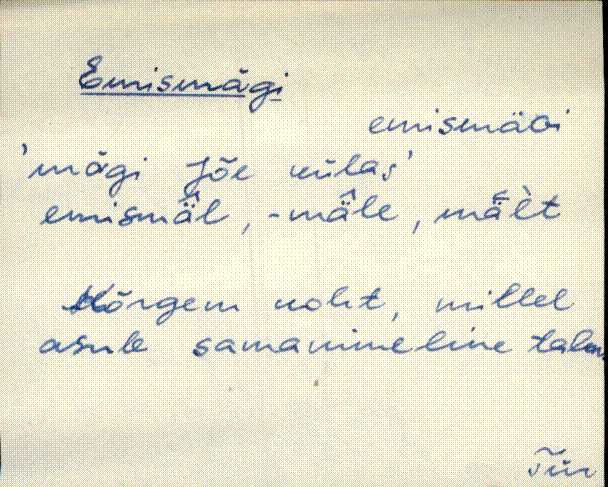 Emismägi
emismäoi
'mägi Jõe külas'
emismä̂l, -mä̂le, mäèt
Kõrgem koht, millel
asub samanimeline talu.
Tür